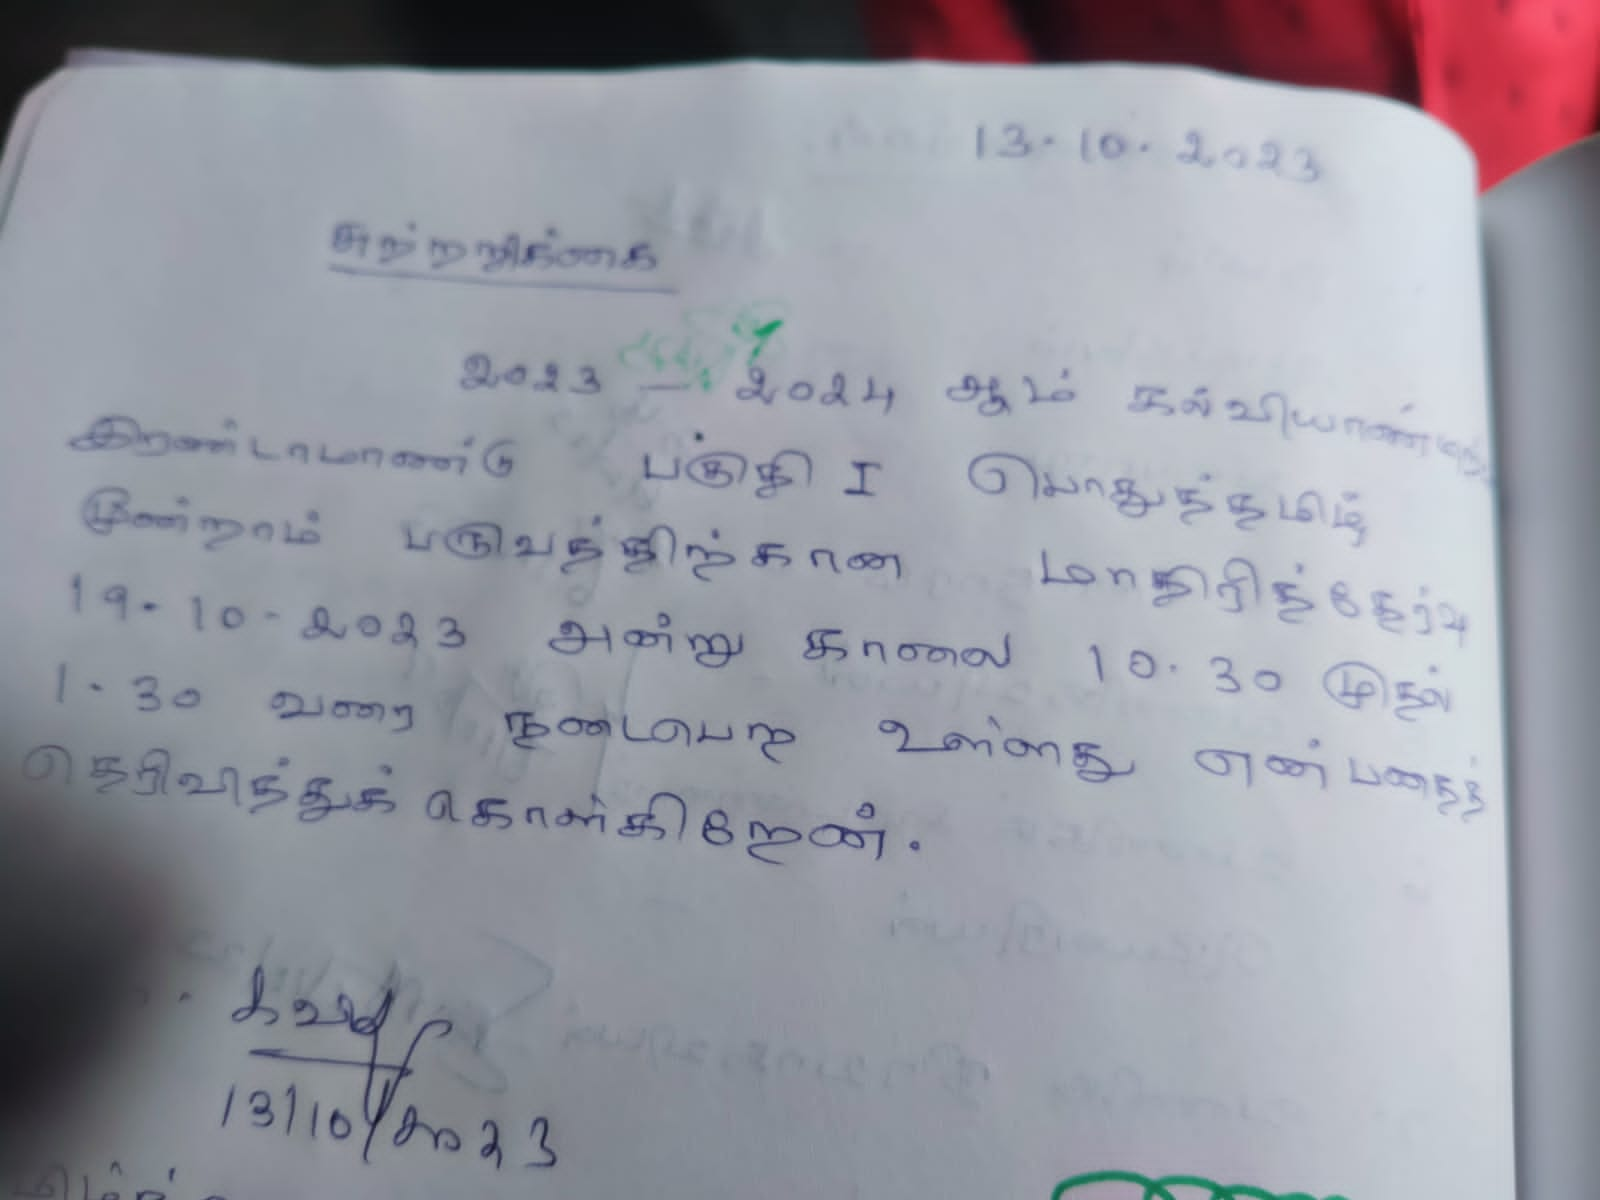 13.10.2023
சுற்றறிக்கை
2023 - 2024 ஆம் கல்வியாண்டில்
இரண்டாமாண்டு பகுதி I பொதுத்தமிழ்
மூன்றாம் பருவத்திற்கான மாதிரித்தேர்வு
19.10.2023 அன்று காலை 10.30 முதல்
1.30 வரை நடைபெற உள்ளது என்பதைத்
தெரிவித்துக் கொள்கிறேன்.
13/10/2023